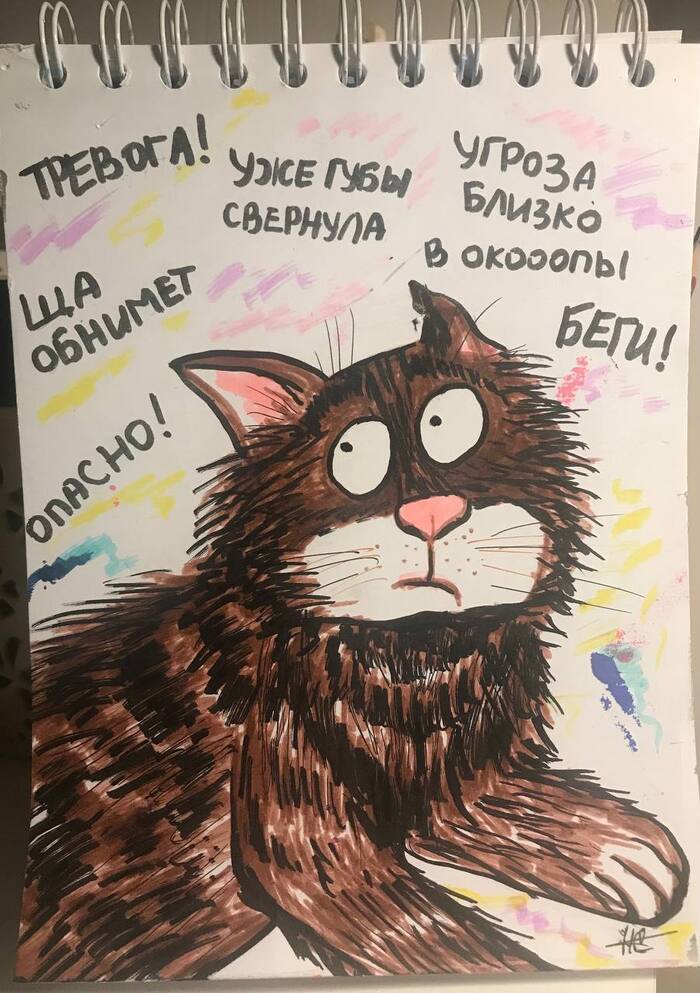 ТРЕВОГА!
УЖЕ ГУБЫ
СВЕРНУЛА
УГРОЗА
БЛИЗКО
В ОКОООПЫ
БЕГИ!
ЩА
ОБНИМЕТ
ОПАСНО!